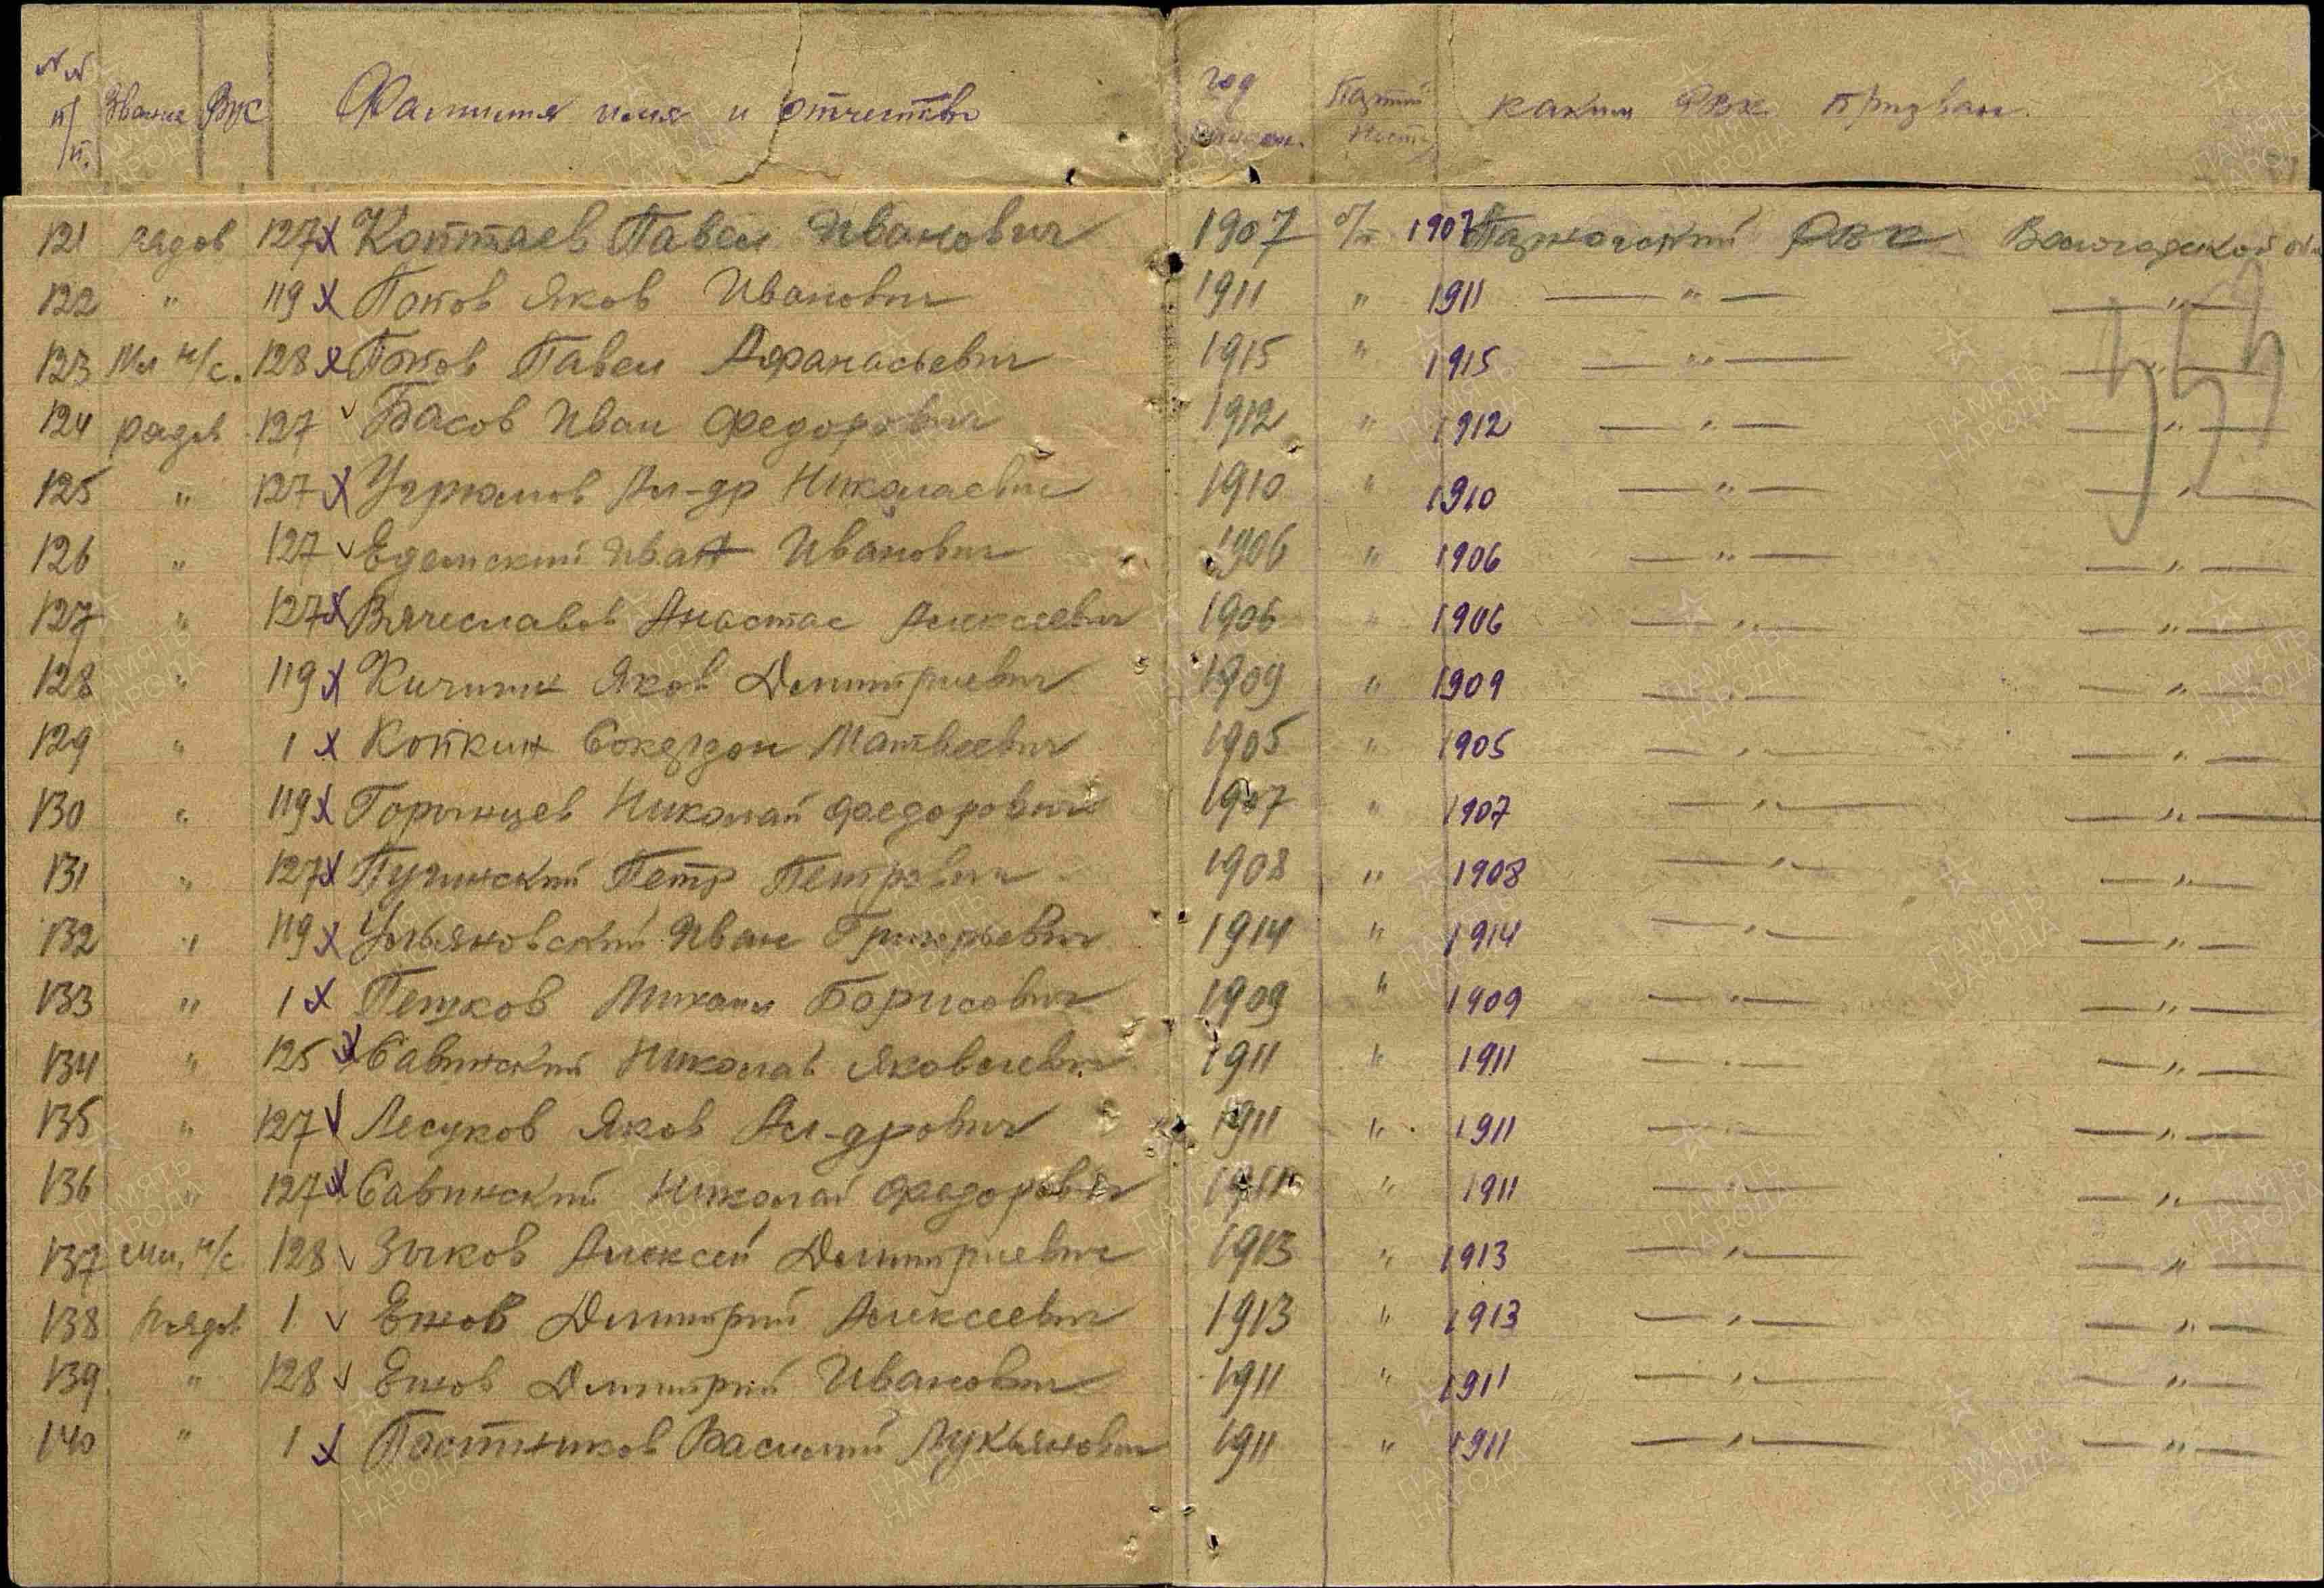 №№ п/п. Звание ВУС Фамилия имя и отчество год рожден. Партийность каким РВК призван.
121 рядов 127 х Коптяев Павел Иванович 1907 б/п 1907 РВК Вологодской обл
122 " 119 х Попов Яков Иванович 1911 " 1911 — " — — " —
123 Мл к/с. 128 х Попов Павел Афанасьевич 1915 " 1915 — " — — " —
124 рядов 127 ✓ Басов Иван Федорович 1912 " 1912 — " — — " —
125 " 127 х Угрюмов Ал-др Николаевич 1910 " 1910 — " — — " —
126 " 127 ✓ Едемский Иван Иванович 1906 " 1906 — " — — " —
127 " 127 х Вячеславов Анастас Алексеевич 1906 " 1906 — " — — " —
128 " 119 х Кичигин Яков Дмитриевич 1909 " 1909 — " — — " —
129 " 1 х Копкин Матвеевич 1905 " 1905 — " — — " —
130 " 119 х Горынцев Николай Федорович 1907 " 1907 — " — — " —
131 " 127 х Пугинский Петр Петрович 1908 " 1908 — " — — " —
132 " 119 х Ульяновский Иван Григорьевич 1914 " 1914 — " — — " —
133 " 1 х Пешков Михаил Борисович 1909 " 1909 — " — — " —
134 " 125 х Савинский Николай Яковлевич 1911 " 1911 — " — — " —
135 " 127 ✓ Лесуков Яков Ал-дрович 1911 " 1911 — " — — " —
136 " 127 х Савинский Николай Федорович 1911 " 1911 — " — — " —
137 мл. к/с 128 ✓ Зыков Алексей Дмитриевич 1913 " 1913 — " — — " —
138 Рядов 1 ✓ Ежов Дмитрий Алексеевич 1913 " 1913 — " — — " —
139 " 128 ✓ Ежов Дмитрий Иванович 1911 " 1911 — " — — " —
140 " 1 х Постников Василий Лукьянович 1911 " 1911 — " — — " —